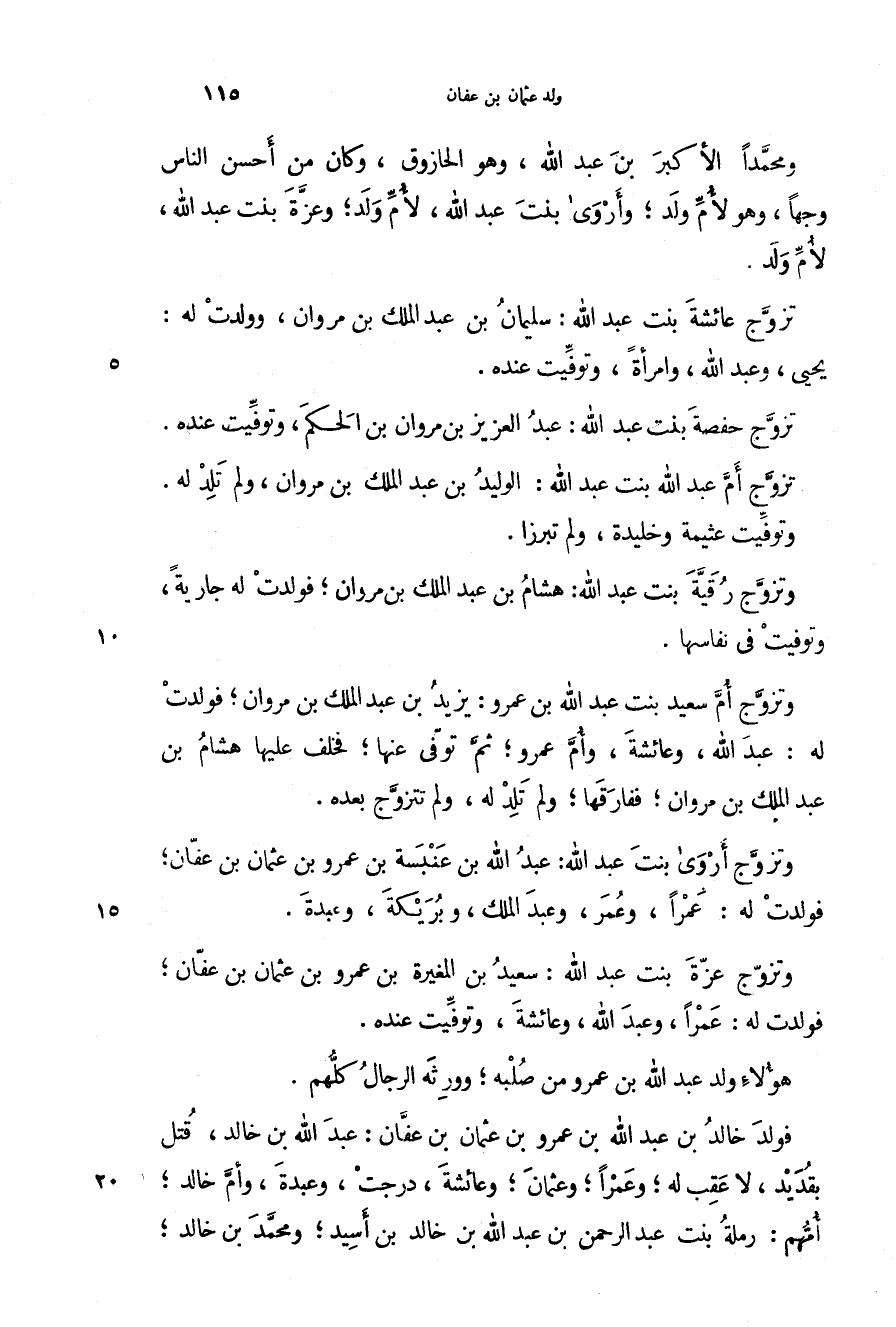 ولد عثمان بن عفان ١١٥
ومحمَّداً الأكبرَ بنَ عبد الله ، وهو الحازوق ، وكان من أَحسن الناس
وجهاً ، وهو لأُمِّ ولَد ؛ وأَرْوَىٰ بنتَ عبد الله ، لأُمِّ وَلَد؛ وعزَّةَ بنت عبد الله ،
لأُمِّ وَلَد .
تزوَّج عائشةَ بنت عبد الله : سليمانُ بن عبد الملك بن مروان ، وولدتْ له :
يحيى ، وعبد الله ، وامرأةً ، وتوفِّيت عنده . ٥
تزوَّج حفصةَ بنت عبد الله : عبدُ العزيز بن مروان بن الحكَم ، وتوفِّيت عنده .
تزوَّج أُمَّ عبد الله بنت عبد الله : الوليدُ بن عبد الملك بن مروان ، ولم تَلِدْ له .
وتوفِّيت عثيمة وخليدة ، ولم تبرزا .
وتزوَّج رُقَيَّةَ بنت عبد الله : هشامُ بن عبد الملك بن مروان ؛ فولدتْ له جاريةً ،
وتوفيتْ فى نفاسها . ١٠
وتزوَّج أُمَّ سعيد بنت عبد الله بن عمرو : يزيدُ بن عبد الملك بن مروان ؛ فولدتْ
له : عبدَ الله ، وعائشةَ ، وأُمَّ عمرو ؛ ثمَّ توفّى عنها ؛ فخلف عليها هشامُ بن
عبد الملك بن مروان ؛ ففارَقَها ؛ ولم تَلِدْ له ، ولم تتزوَّج بعده .
وتزوَّج أَرْوَىٰ بنتَ عبد الله : عبدُ الله بن عَنْبَسة بن عمرو بن عثمان بن عفّان ؛
فولدتْ له : عَمْراً ، وعُمَرَ ، وعبدَ الملك ، وبُرَيْكَةَ ، وعبدةَ . ١٥
وتزوّج عزّةَ بنت عبد الله : سعيدُ بن المغيرة بن عمرو بن عثمان بن عفّان ؛
فولدت له : عَمْراً ، وعبدَ الله ، وعائشةَ ، وتوفِّيت عنده .
هؤلاءِ ولد عبد الله بن عمرو من صُلْبه ؛ وورِثَه الرجالُ كلُّهم .
فولدَ خالدُ بن عبد الله بن عمرو بن عثمان بن عفَّان : عبدَ الله بن خالد ، قُتل
بقُدَيْد ، لا عَقِب له ؛ وعَمْراً ؛ وعثمانَ ؛ وعائشةَ ، درجتْ ، وعبدةَ ، وأمَّ خالد ؛ ٢٠
أُمُّهم : رملةُ بنت عبد الرحمن بن عبد الله بن خالد بن أَسِيد ؛ ومحمَّدَ بن خالد ؛